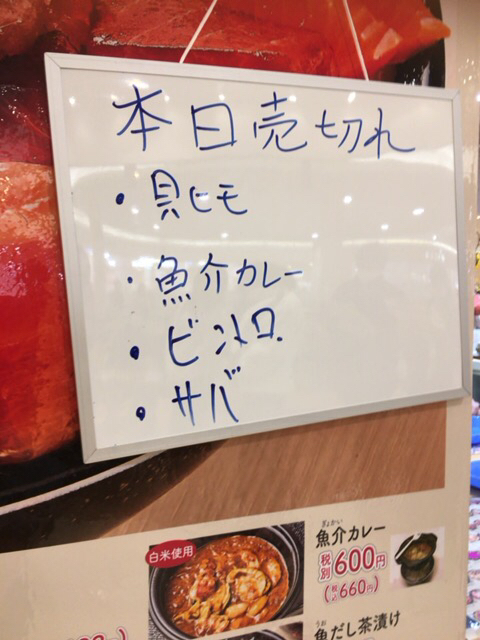 本日売切れ
・貝ヒモ
・魚介カレー
・ビントロ
・サバ
白米使用
ぎょかい
魚介カレー
税別600円
(税込660円)
うお
魚だし茶漬け